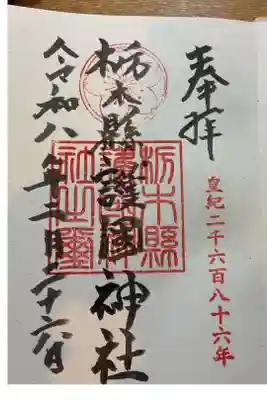 奉拝
皇紀二千六百八十六年
栃木縣護國神社
栃木縣
護國神
社之璽
令和八年二月二十六日